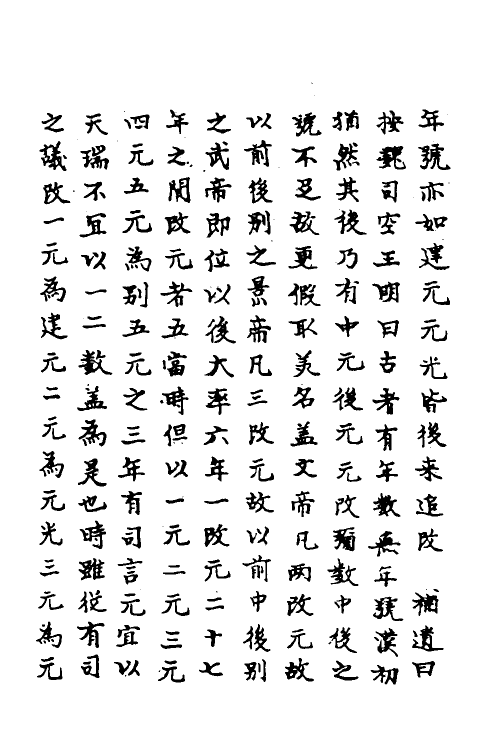 年號亦如建元元光皆後来追改　補遺曰
按魏司空王明曰古者有年數無年號漢初
猶然其後乃有中元後元元改彌數中後之
號不足故更假取美名盖文帝凡两改元故
以前後别之景帝凡三改元故以前中後别
之武帝即位以後大率六年一改元二十七
年之間改元者五當時但以一元二元三元
四元五元為别五元之三年有司言元宜以
天瑞不宜以一二數盖為是也時雖従有司
之議改一元為建元二元為元光三元為元